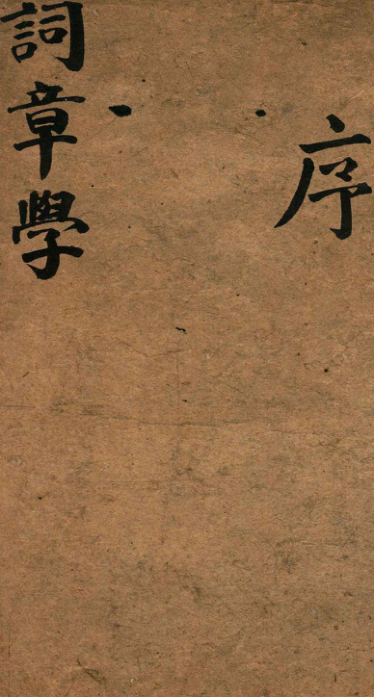 序
詞章學